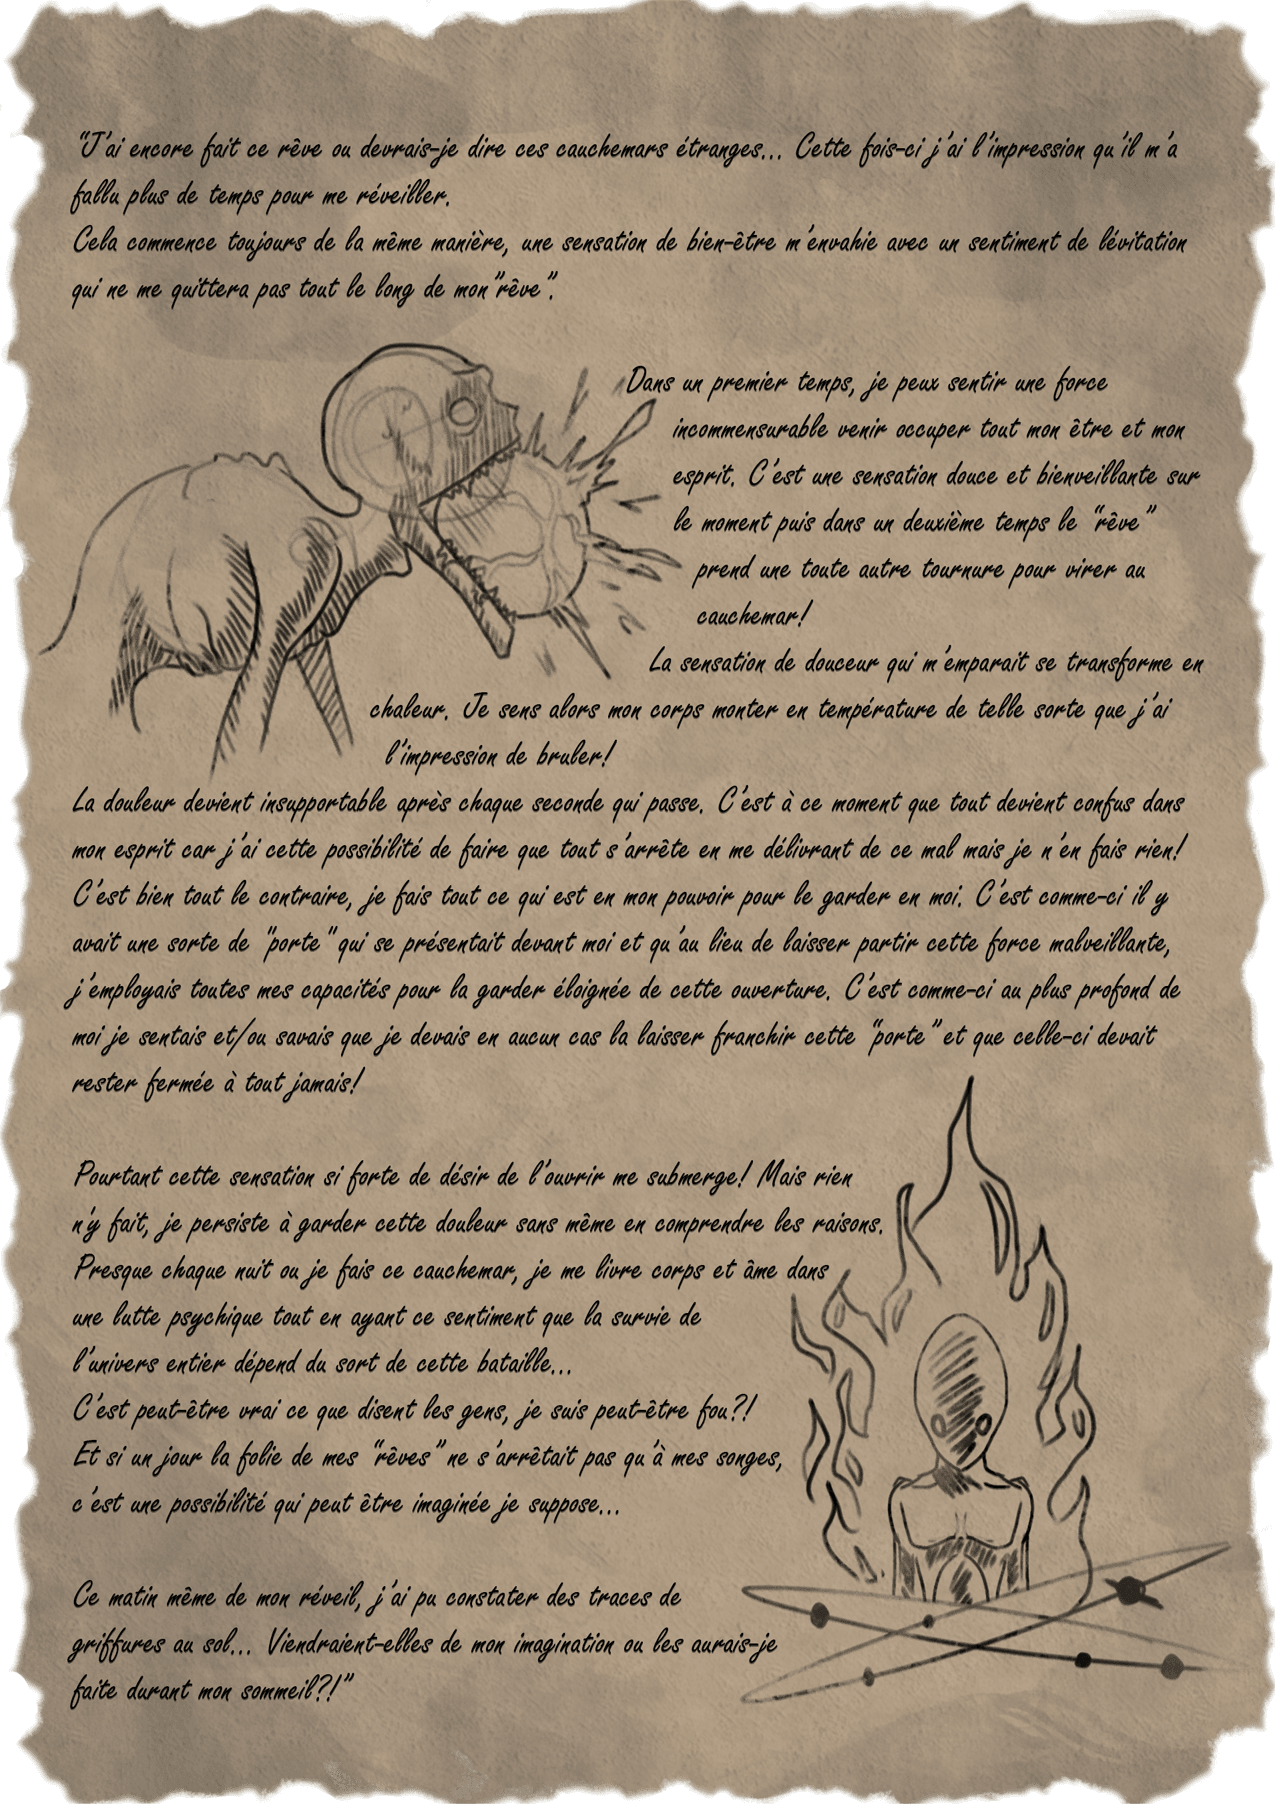 "J'ai encore fait ce rêve ou devrais-je dire ces cauchemars étranges... Cette fois-ci j'ai l'impression qu'il m'a
fallu plus de temps pour me réveiller.
Cela commence toujours de la même manière, une sensation de bien-être m'envahie avec un sentiment de lévitation
qui ne me quittera pas tout le long de mon "rêve".
Dans un premier temps, je peux sentir une force
incommensurable venir occuper tout mon être et mon
esprit. C'est une sensation douce et bienveillante sur
le moment puis dans un deuxième temps le "rêve"
prend une toute autre tournure pour virer au
cauchemar!
La sensation de douceur qui m'emparait se transforme en
chaleur. Je sens alors mon corps monter en température de telle sorte que j'ai
l'impression de bruler!
La douleur devient insupportable après chaque seconde qui passe. C'est à ce moment que tout devient confus dans
mon esprit car j'ai cette possibilité de faire que tout s'arrête en me délivrant de ce mal mais je n'en fais rien!
C'est bien tout le contraire, je fais tout ce qui est en mon pouvoir pour le garder en moi. C'est comme-ci il y
avait une sorte de "porte" qui se présentait devant moi et qu'au lieu de laisser partir cette force malveillante,
j'employais toutes mes capacités pour la garder éloignée de cette ouverture. C'est comme-ci au plus profond de
moi je sentais et/ou savais que je devais en aucun cas la laisser franchir cette "porte" et que celle-ci devait
rester fermée à tout jamais!
Pourtant cette sensation si forte de désir de l'ouvrir me submerge! Mais rien
n'y fait, je persiste à garder cette douleur sans même en comprendre les raisons.
Presque chaque nuit ou je fais ce cauchemar, je me livre corps et âme dans
une lutte psychique tout en ayant ce sentiment que la survie de
l'univers entier dépend du sort de cette bataille...
C'est peut-être vrai ce que disent les gens, je suis peut-être fou?!
Et si un jour la folie de mes "rêves" ne s'arrêtait pas qu'à mes songes,
c'est une possibilité qui peut être imaginée je suppose...
Ce matin même de mon réveil, j'ai pu constater des traces de
griffures au sol... Viendraient-elles de mon imagination ou les aurais-je
faite durant mon sommeil?!"